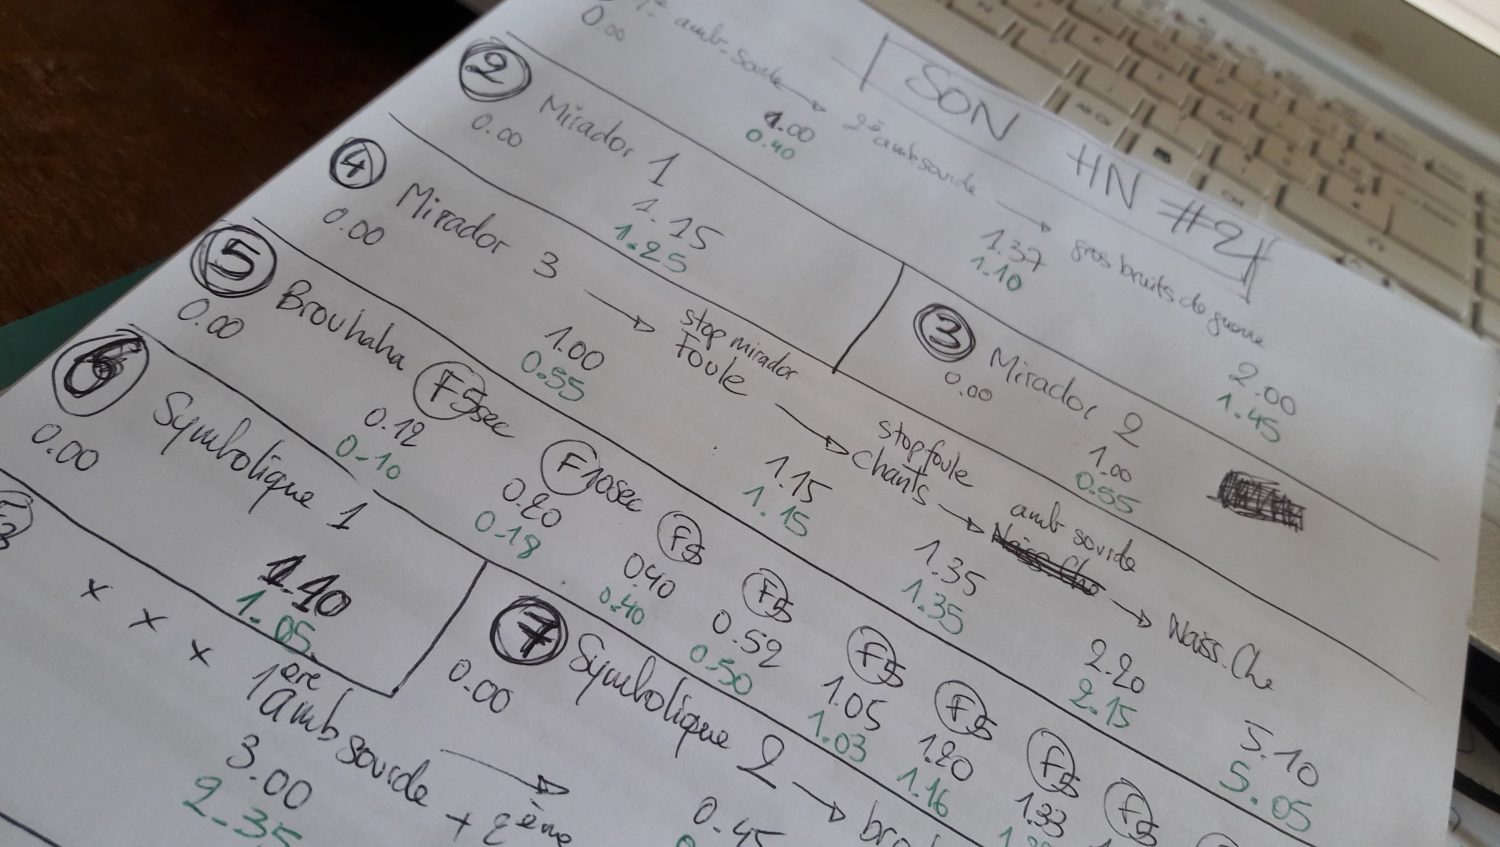 SON HN #2
1ª amb sourde → 2ª amb sourde → gros bruits de guerre
0.00 1.00 1.37 2.00
0.40 1.10 1.45
2 Mirador 1
0.00 1.15
1.25
3 Mirador 2
0.00 1.00
0.55
4 Mirador 3 → stop mirador Foule → stop foule chants → amb sourde → Naiss. Che
0.00 1.00 1.15 1.35 2.20 5.10
0.55 1.15 1.35 2.15 5.05
5 Brouhaha F5sec F10sec F5 F5 F5 F5 F5 F5
0.00 0.12 0.20 0.40 0.52 1.05 1.20 1.33
0.10 0.18 0.40 0.50 1.03 1.16
6 Symbolique 1
0.00 1.10
1.05
7 Symbolique 2 →
0.00 0.45
x x x 1ère amb sourde → + 2ème
3.00
2.35